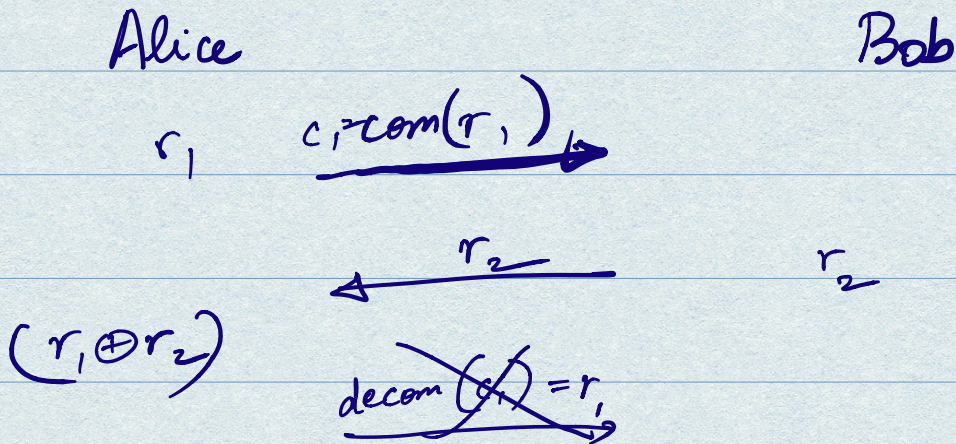 Alice Bob
r₁ c₁=com(r₁)
r₂ r₂
(r₁⊕r₂)
decom(c₁)=r₁